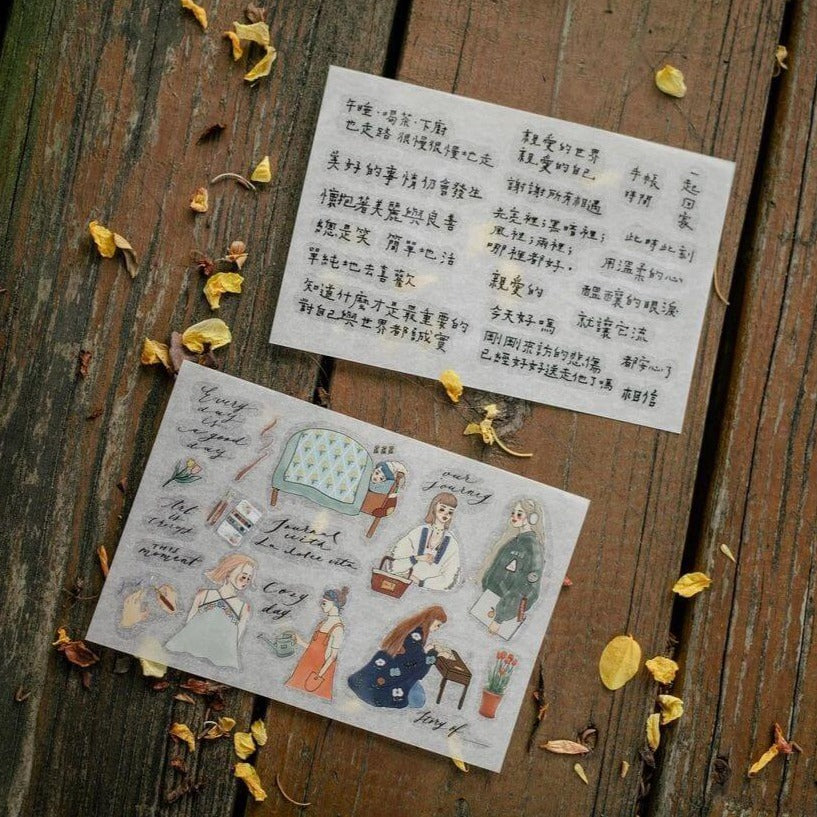 午睡·喝茶·下廚
也走路 很慢很慢地走
美好的事情切會發生
懷抱著美麗與良善
總是笑 簡單地活
單純地去喜歡
知道什麼才是最重要的
對自己與世界都誠實
親愛的世界
親愛的自己
謝謝所有相遇
光亮裡；黑暗裡；
風裡；雨裡；
哪裡都好。
親愛的
今天好嗎
剛剛來訪的悲傷
已經好好送走他了嗎
手帳
時間
一起回家
此時此刻
用溫柔的心
醞釀的眼淚
就讓它流
都安心了
相信
Every
day is
a good
day
Art
is
things
THIS
moment
Journal
with
La dolce vita
Cozy
day
our
journey
Story of